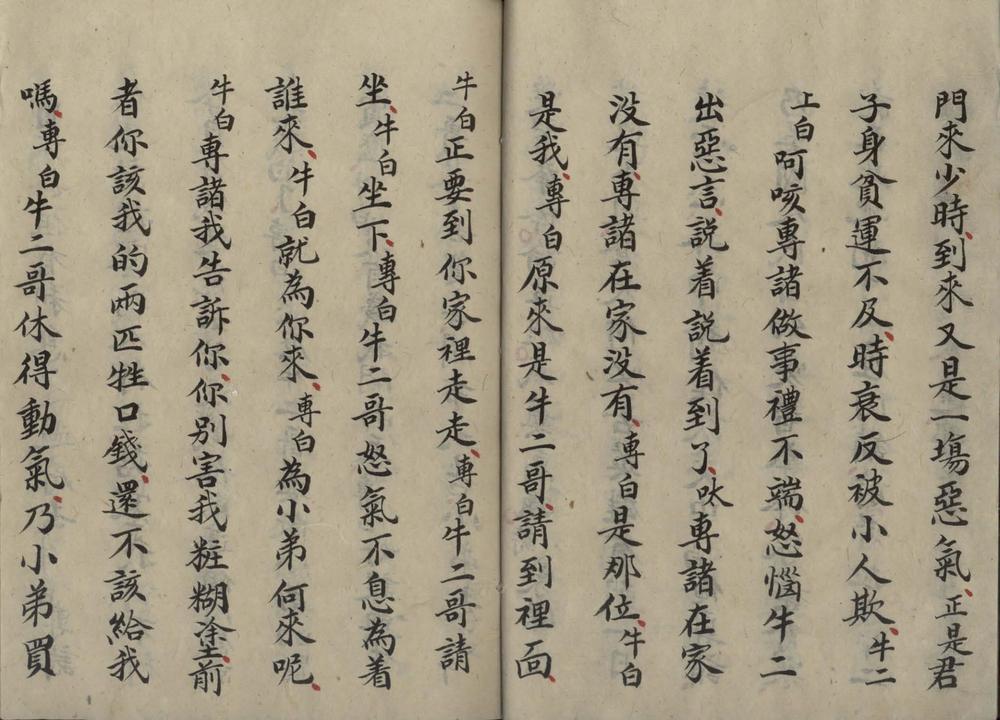 門來少時、到來又是一塲惡氣、正是君
子身貧運不及、時衰反被小人欺、牛二
上白呵咳專諸做事禮不端、怒惱牛二
出惡言、説着説着到了、呔專諸在家
没有、專諸在家没有、專白是那位、牛白
是我、專白原來是牛二哥、請到裡面、
牛白正要到你家裡走走、專白牛二哥請
坐、牛白坐下、專白牛二哥怒氣不息為着
誰來、牛白就為你來、專白為小弟何來呢、
牛白專諸我告訴你、你別害我粧糊塗、前
者你該我的兩匹牲口錢、還不該給我
嗎、專白牛二哥休得動氣、乃小弟買